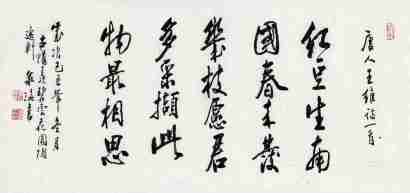 唐人王維詩一首
紅豆生南
國春來發
幾枝願君
多采擷此
物最相思
歲次己丑年冬月